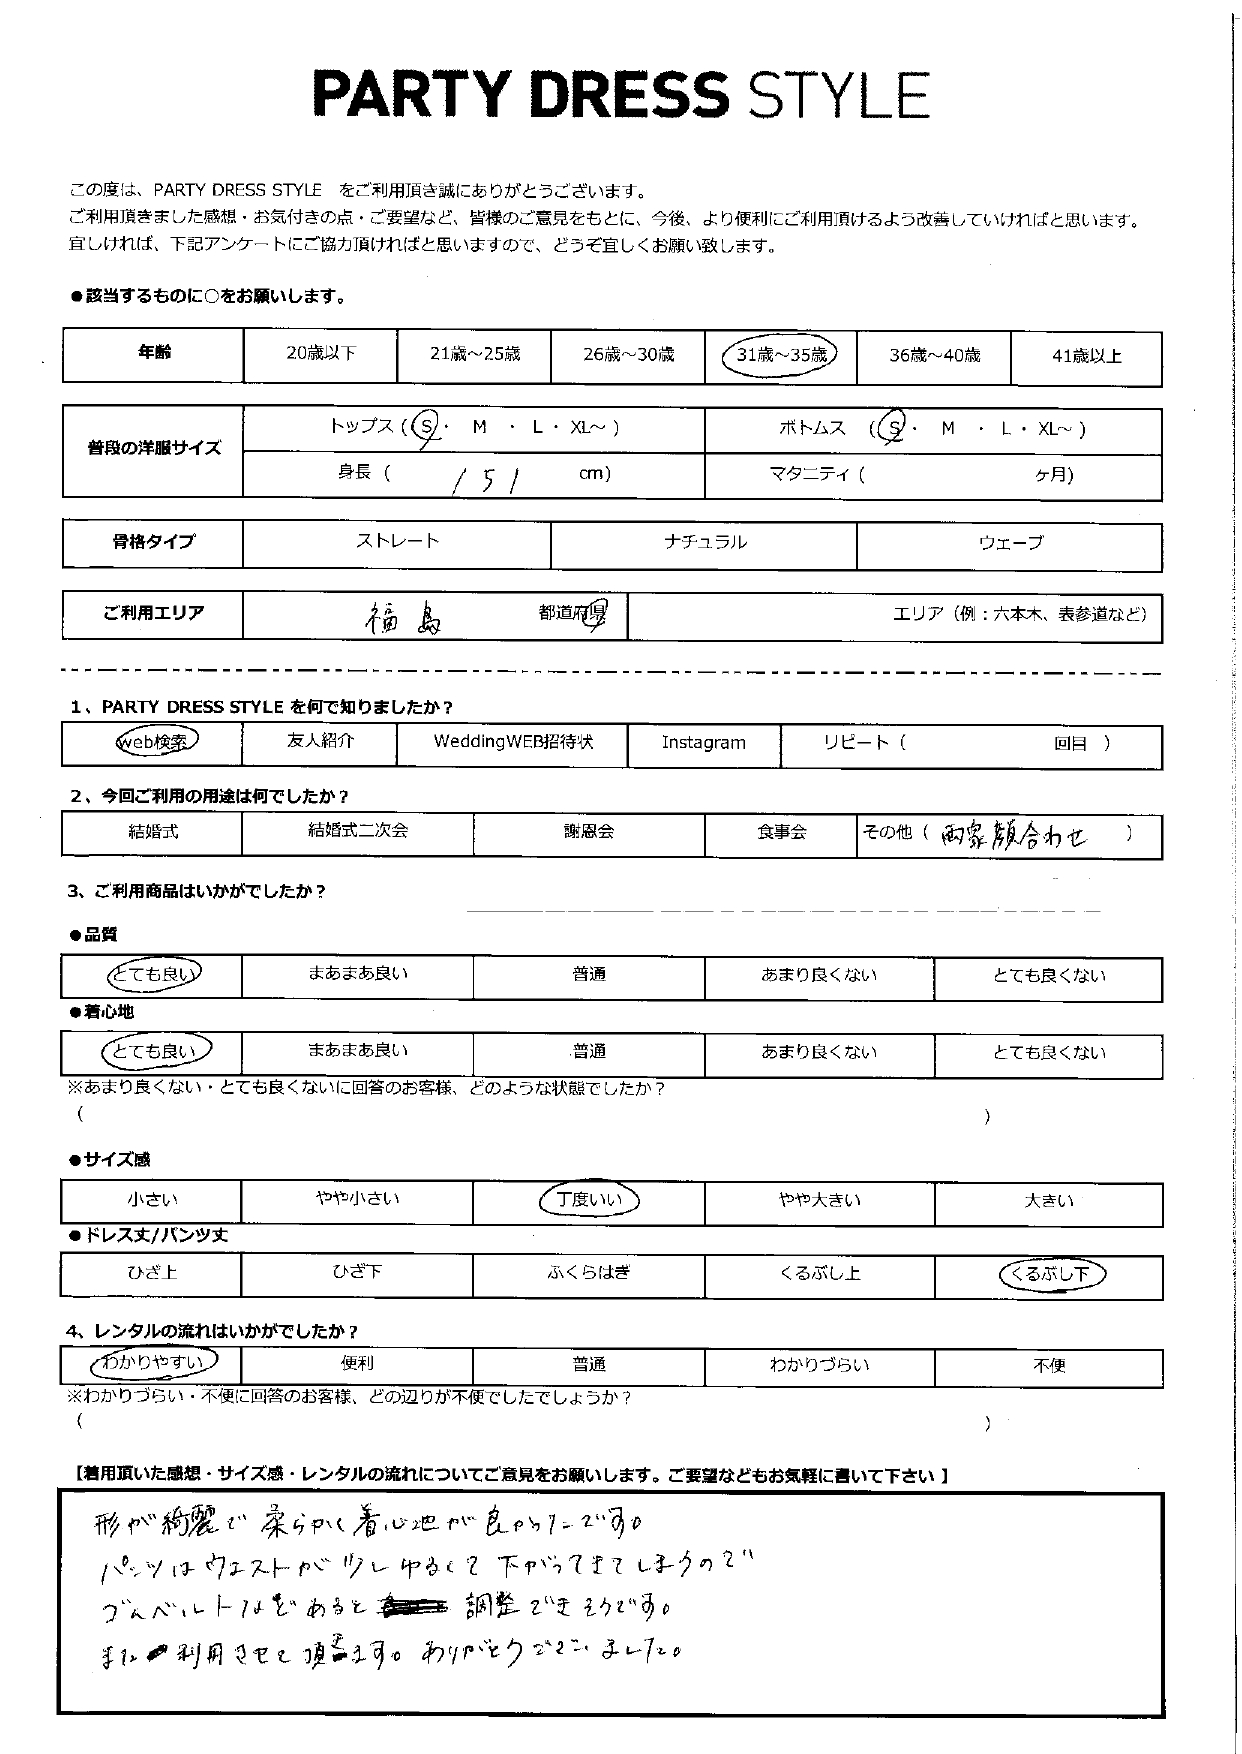 PARTY DRESS STYLE
この度は、PARTY DRESS STYLE をご利用頂き誠にありがとうございます。
ご利用頂きました感想・お気付きの点・ご要望など、皆様のご意見をもとに、今後、より便利にご利用頂けるよう改善していければと思います。
宜しければ、下記アンケートにご協力頂ければと思いますので、どうぞ宜しくお願い致します。
●該当するものに○をお願いします。
年齢 20歳以下 21歳～25歳 26歳～30歳 31歳～35歳 36歳～40歳 41歳以上
普段の洋服サイズ トップス (S・ M ・ L・ XL～ ) ボトムス (S・ M ・ L・ XL～ )
身長 ( 151 cm) マタニティ ( ヶ月)
骨格タイプ ストレート ナチュラル ウェーブ
ご利用エリア 福島 都道府県 エリア（例：六本木、表参道など）
1、PARTY DRESS STYLE を何で知りましたか？
web検索 友人紹介 WeddingWEB招待状 Instagram リピート ( 回目 )
2、今回ご利用の用途は何でしたか？
結婚式 結婚式二次会 謝恩会 食事会 その他 ( 両家顔合わせ )
3、ご利用商品はいかがでしたか？
●品質
とても良い まあまあ良い 普通 あまり良くない とても良くない
●着心地
とても良い まあまあ良い 普通 あまり良くない とても良くない
※あまり良くない・とても良くないに回答のお客様、どのような状態でしたか？
( )
●サイズ感
小さい やや小さい 丁度いい やや大きい 大きい
●ドレス丈/パンツ丈
ひざ上 ひざ下 ふくらはぎ くるぶし上 くるぶし下
4、レンタルの流れはいかがでしたか？
わかりやすい 便利 普通 わかりづらい 不便
※わかりづらい・不便に回答のお客様、どの辺りが不便でしたでしょうか？
( )
【着用頂いた感想・サイズ感・レンタルの流れについてご意見をお願いします。ご要望などもお気軽に書いて下さい】
形が綺麗で柔らかく着心地が良かったです。
パンツはウエストが少しゆるくて下がってきてしまうので
ゴムベルトなどあると調整できそうです。
また利用させて頂きます。ありがとうございました。